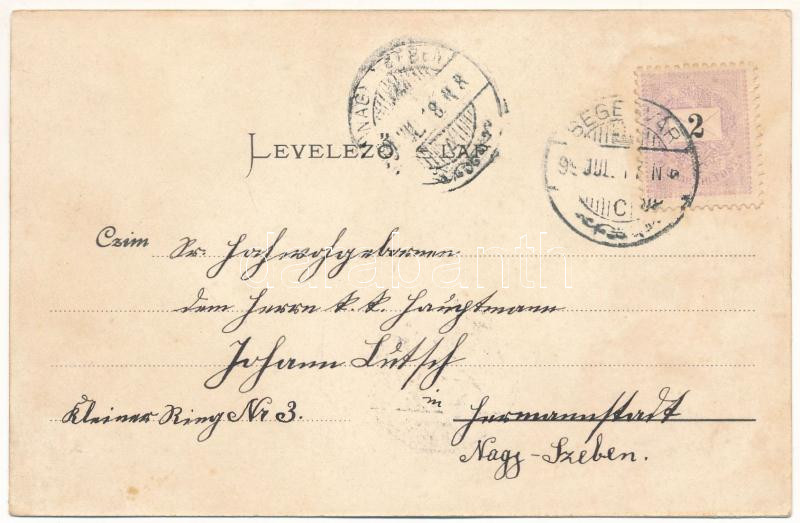 NAGY
8 N 8
LEVELEZŐ LAP
SEGESVÁR
2
99 JUL. 17 N
C
Czim Sr. Hochwohlgeboren
dem Herrn k. k. Hauptmann
Johann Lutsch
in
Kleiner Ring Nr 3. Hermannstadt
Nagy-Szeben.
darabanth